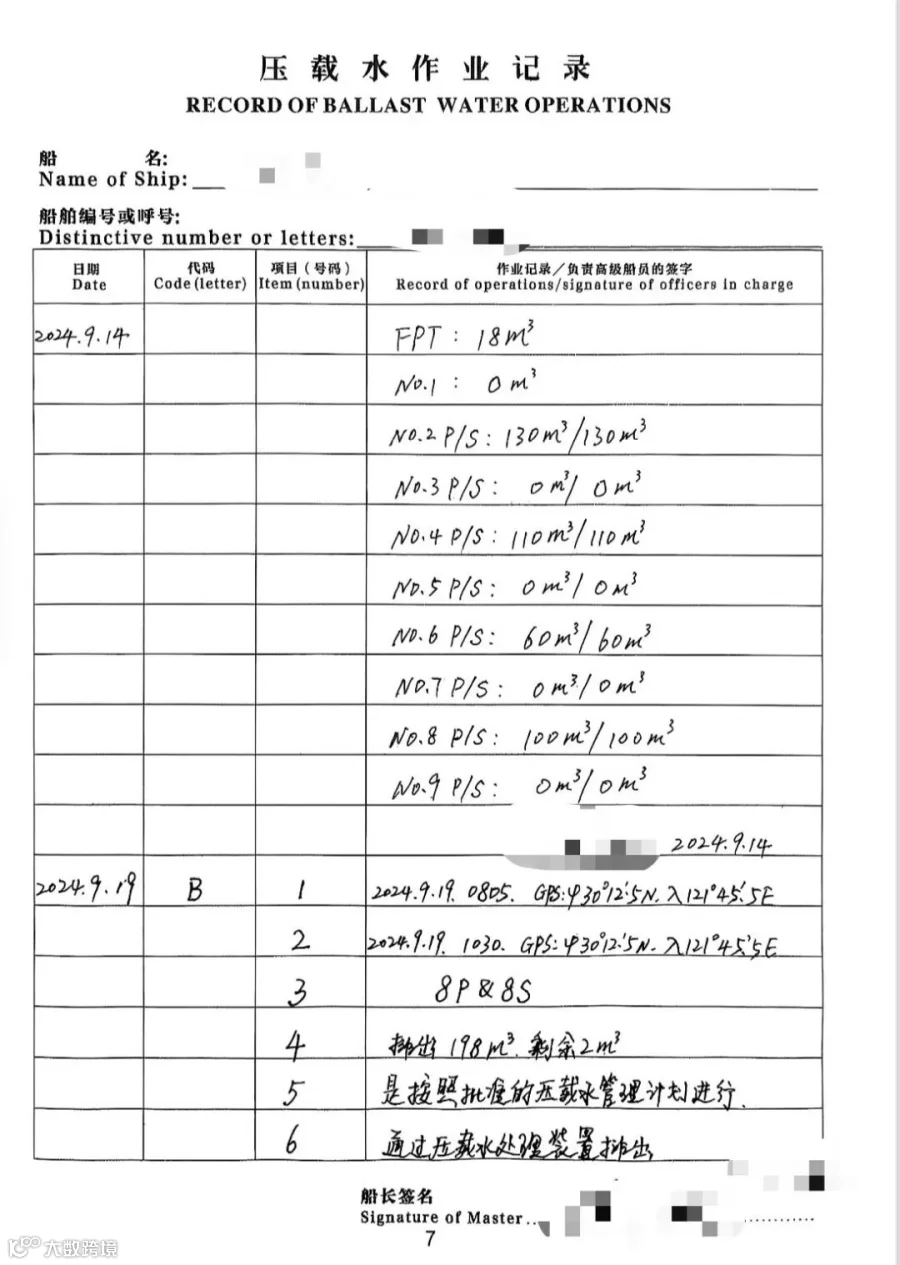 压载水作业记录
RECORD OF BALLAST WATER OPERATIONS
船 名:
Name of Ship:
船舶编号或呼号:
Distinctive number or letters:
日期 代码 项目(号码) 作业记录/负责高级船员的签字
Date Code(letter) Item(number) Record of operations/signature of officers in charge
2024.9.14 FPT: 18m³
No.1: 0m³
No.2 P/S: 130m³/130m³
No.3 P/S: 0m³/0m³
No.4 P/S: 110m³/110m³
No.5 P/S: 0m³/0m³
No.6 P/S: 60m³/60m³
No.7 P/S: 0m³/0m³
No.8 P/S: 100m³/100m³
No.9 P/S: 0m³/0m³
2024.9.14
2024.9.19 B 1 2024.9.19. 0805. GPS:φ30°12′.5N. λ121°45′.5E
2 2024.9.19. 1030. GPS:φ30°12′.5N. λ121°45′.5E
3 8P&8S
4 排出198m³.剩余2m³
5 是按照批准的压载水管理计划进行.
6 通过压载水处理装置排出
船长签名
Signature of Master
7
大数跨境